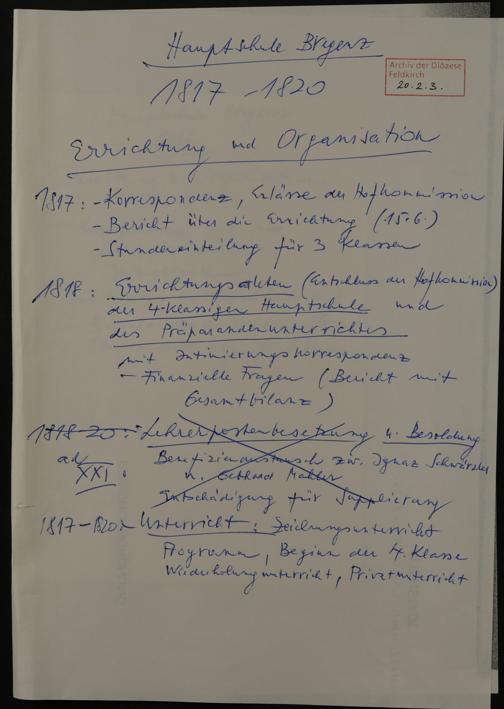 Hauptschule Bregenz
Archiv der Diözese
Feldkirch
20.2.3.
1817 - 1820
Errichtung und Organisation
1817: - Korrespondenz, Erlässe der Hofkommission
- Bericht über die Errichtung (15.6.)
- Stundeneinteilung für 3 Klassen
1818: Errichtungsakten (Entschluss der Hofkommission)
der 4-klassigen Hauptschule und
des Präparandenunterrichtes
mit Intimierungskorrespondenz
- Finanzielle Fragen (Bericht mit
Gesamtbilanz)
1818-20: Lehrerpostenbesetzung u. Besoldung
ad XXI. Benefizienaustausch zw. Ignaz Schwärzler
u. Gebhard Mähler
Entschädigung für Supplierung
1817-1820: Unterricht: Zeichnungsunterricht
Programm, Beginn der 4. Klasse
Wiederholungsunterricht, Privatunterricht